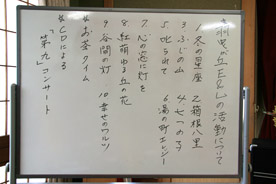 *羽曳が丘E&Lの活動について
1冬の星座 2.箱根八里
3ふじの山 4.七つの子
5叱られて 6.湯の町エレジー
7.心の窓に灯を
8.紅萌ゆる丘の花
9谷間の灯 10.幸せのワルツ
*お茶タイム
*CDによる
「第九」コンサート